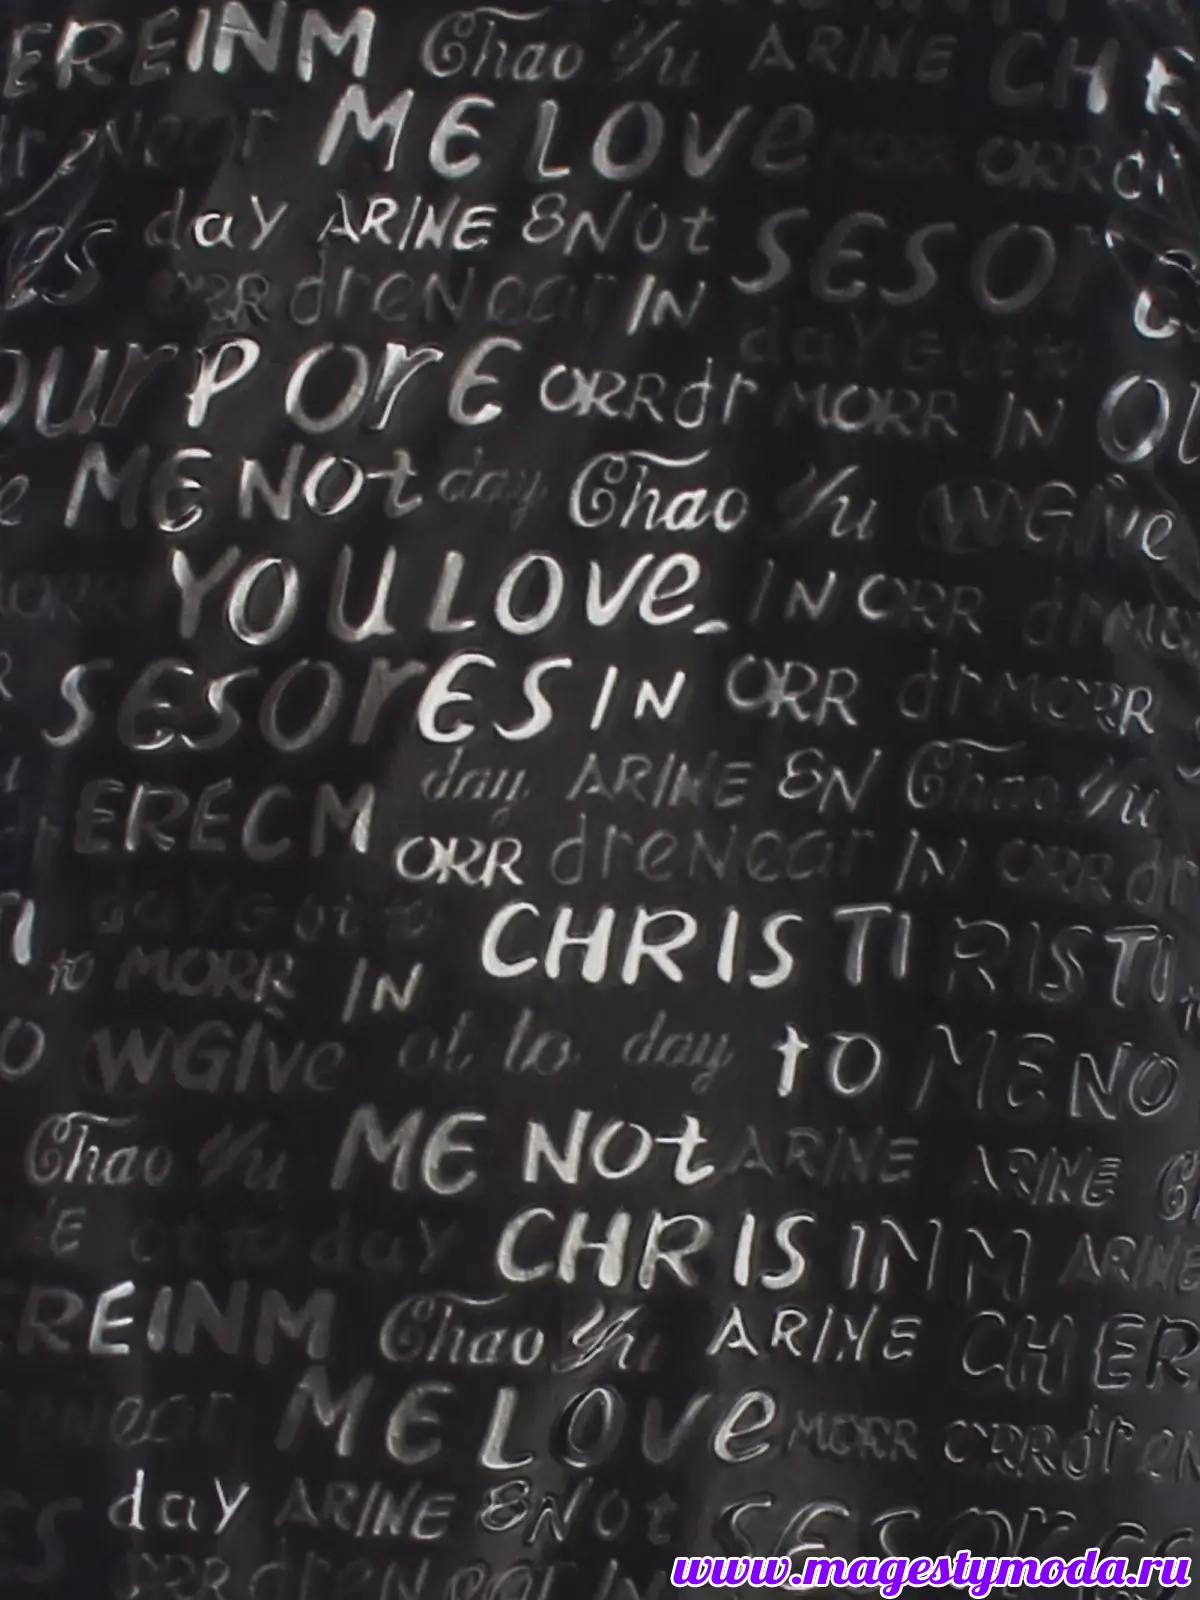 EREINM Chao Yu ARINE CHE
dreNear ME LOVE MORR ORRdr
day ARINE 8Not SESOr
ORR dreNear IN
dayGot to
our PORE ORRdr MORR IN OU
ME NOt day Chao Yu WGIVe
MORR YOU LOVE IN ORR dr MO
SESORES IN ORR dr MORR
day ARINE 8N Chao Yu
ERECM ORR dreNear IN ORR dr
TI dayGot to CHRISTI RISTI
to MORR IN
O WGIVe ot to day to ME NO
Chao Yu ME NOt ARINE ARINE
ot to day CHRIS INM ARINE
REINM Chao Yu ARINE CHER
eNear ME LOVE MORR ORRdreN
day ARINE 8Not SESOr
ORR dreNear IN
www.magestymoda.ru